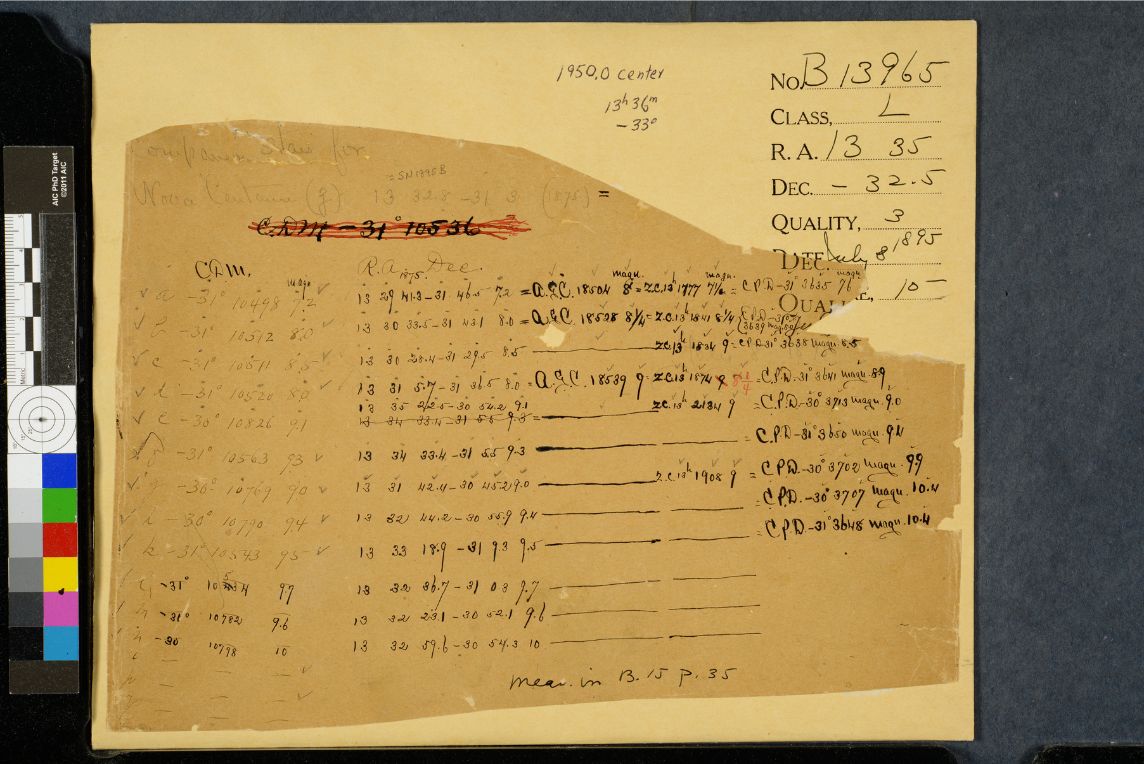 1950.0 center
13ʰ 36ᵐ
-33°
No. B 13965
CLASS, L
R. A. 13 35
DEC. - 32.5
QUALITY, 3
DATE July 8 1895
QUALI E, 10
Comparison Stars for
= SN1895B
Nova Centauri (z) 13 32.8 -31 3 (1875) =
C.D.M -31° 10536
C.D.M. R.A. 1875. Dec.
magn. magn. magn. magn.
a -31° 10498 7.2 13 29 41.3 -31 46.5 7.2 = A.G.C. 18504 8 = Z.C. 13ʰ 1777 7½ = C.P.D -31° 3635 7.6
b -31° 10512 8.0 13 30 33.5 -31 43.1 8.0 = A.G.C. 18528 8¼ = Z.C. 13ʰ 1841 8¼ C.P.D -31° 3639
c -31° 10511 8.5 13 30 28.4 -31 29.5 8.5 Z.C. 13ʰ 1834 9 = C.P.D -31° 3638 magn. 8.5
d -31° 10520 8.0 13 31 5.7 -31 36.5 8.0 = A.G.C. 18539 9 = Z.C. 13ʰ 1874 = C.P.D -31° 3641 magn. 8.9
13 35 -30 54.2 9.1 Z.C. 13ʰ 2134 9 = C.P.D -30° 3713 magn. 9.0
e -30° 10826 9.1 13 34 33.4 -31 5.5 9.3 =
-31° 10563 9.3 13 34 33.4 -31 5.5 9.3 = C.P.D -31° 3650 magn. 9.4
g -30° 10769 9.0 13 31 42.4 -30 45.2 9.0 Z.C. 13ʰ 1908 9 = C.P.D. -30° 3702 magn. 9.9
h -30° 10790 9.4 13 32 44.2 -30 55.9 9.4 = C.P.D. -30° 3707 magn. 10.4
k -31° 10543 9.5 13 33 18.9 -31 9.3 9.5 = C.P.D -31° 3648 magn. 10.4
-31° 9.7 13 32 36.7 -31 0.3 9.7
-31° 10782 9.6 13 32 23.1 -30 52.1 9.6
-30 10798 10 13 32 59.6 -30 54.3 10
Mea. in B. 15 p. 35
AIC PhD Target
©2011 AIC